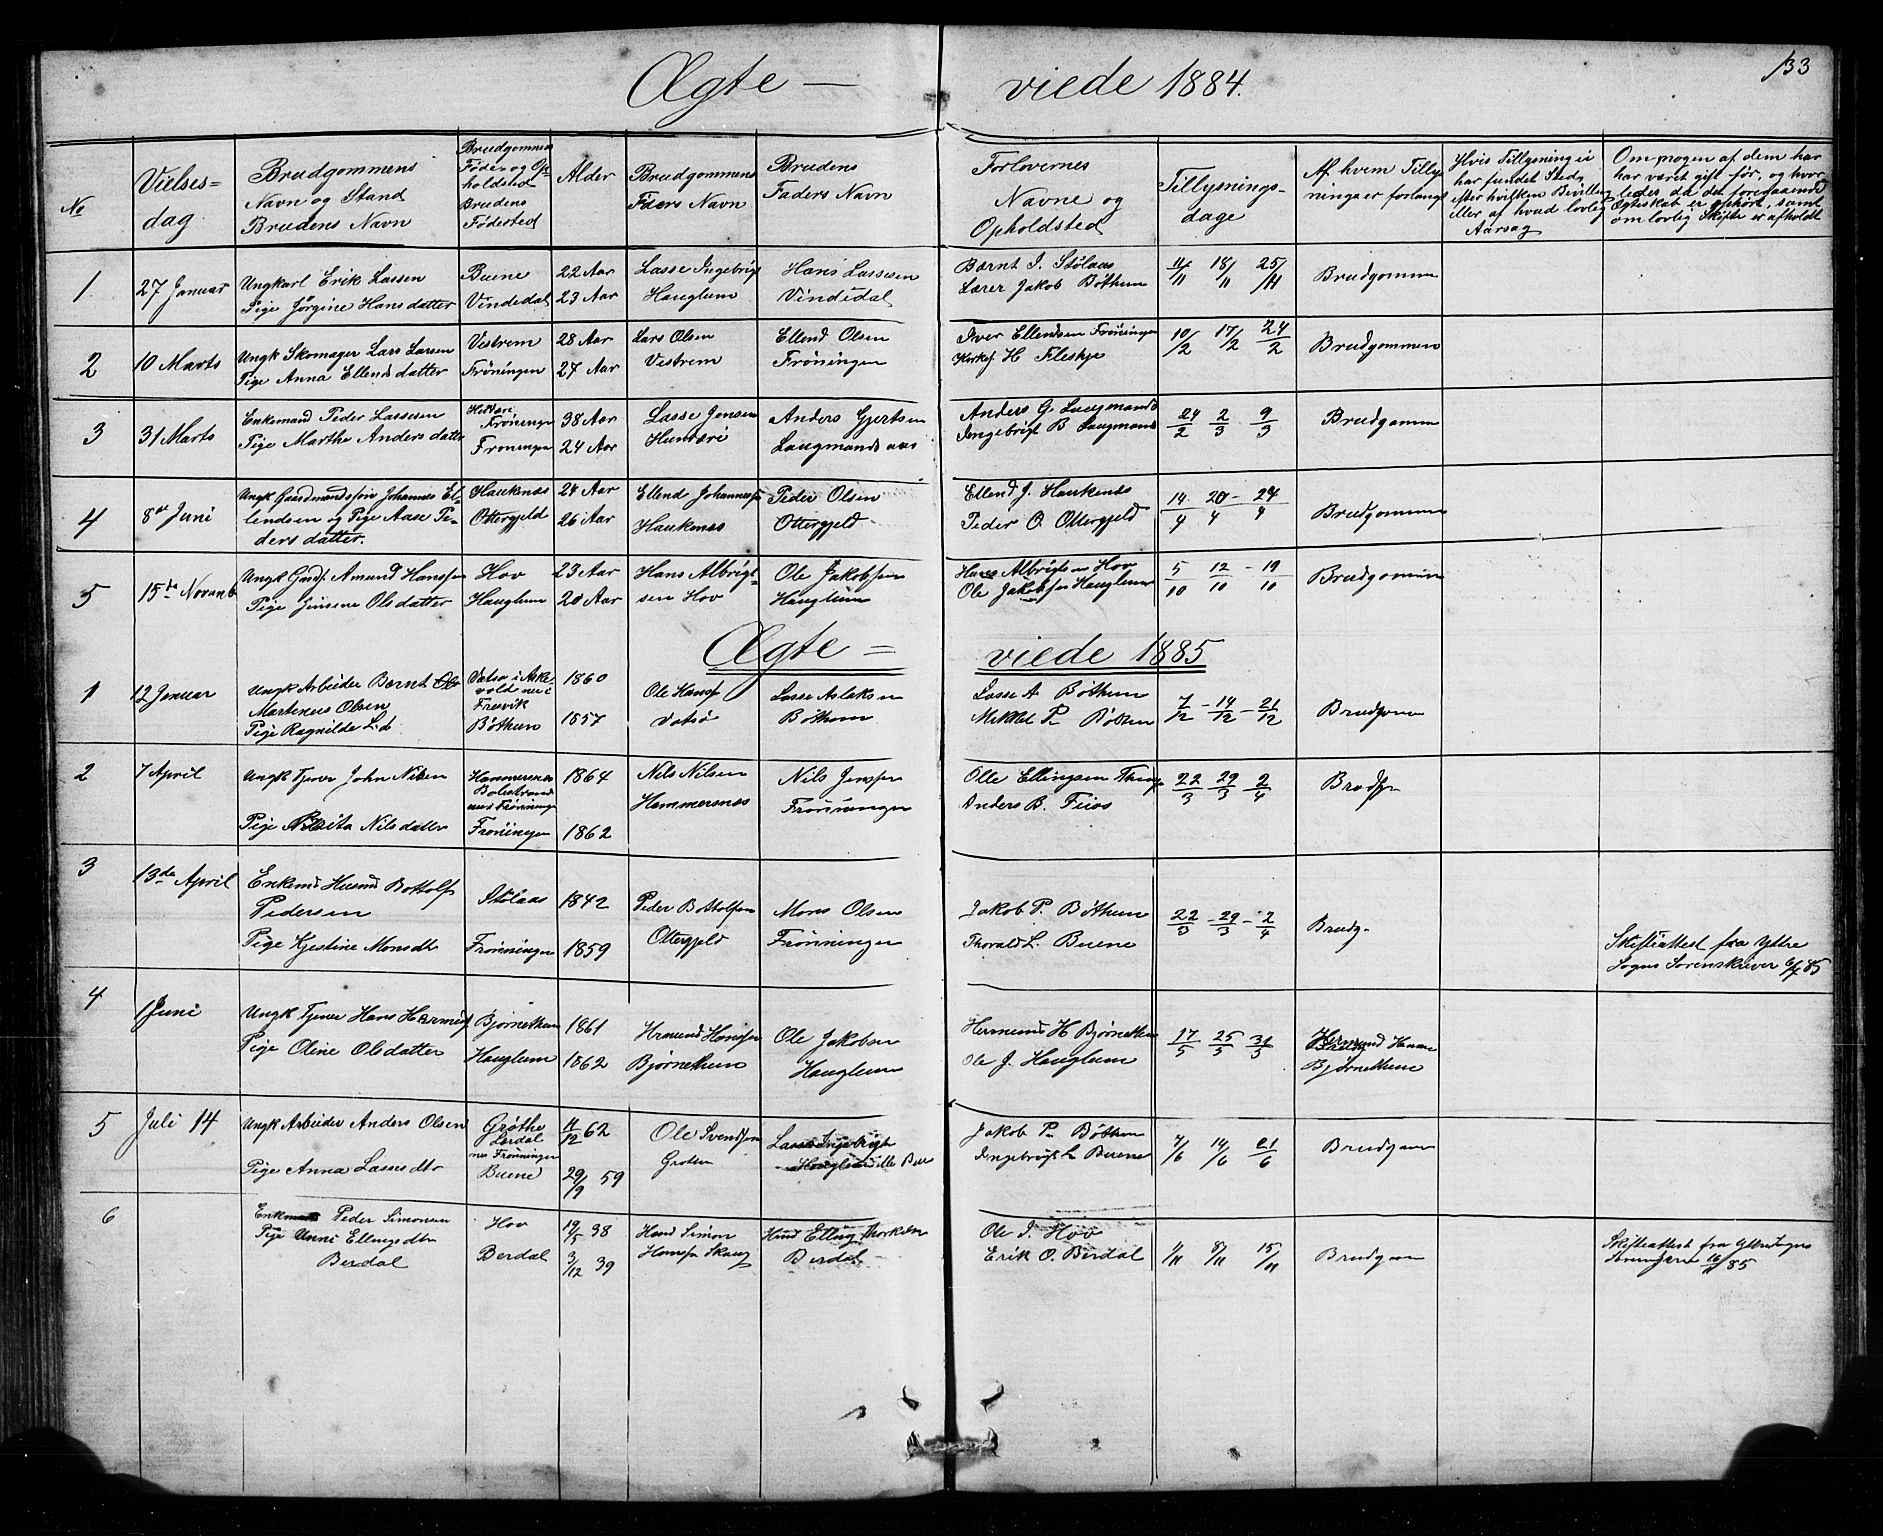 133
Ægte — viede 1884.
No
Vielses=
dag
Brudgommens
Navn og Stand
Brudens Navn
Brudgommens
Føde og Op
holdsted
Brudens
Fødested
Alder
Brudgommens
Fders Navn
Brudens
Faders Navn
Forlovernes
Navne og
Opholdsted
Tillysnings-
dage
Af hvem Tillys
ninga er forlangt
Hvis Tillysning ei
har fundet Sted,
efter hvilken Bevilling
eller af hvad lovlig
Aarsag
Om nogen af dem har
har været gift før, og hvor
ledes da det foregaaende
Ægteskab er ophørt, samt
om lovlig Skifte er afholdt
1
27 Januar
Ungkarl Erik Lassen
Pige Jørgine Hansdatter
Buene
Vindedal
22 Aar
23 Aar
Lasse Ingebrigt
Hauglum
Hans Lassesen
Vindedal
Bærnt J. Stølaas
Lærer Jakob Bøthun
11/11 18/11 25/11
Brudgommen
2
10 Marts
Ungk Skomager Lars Larsen
Pige Anna Ellendsdatter
Vestrem
Frøningen
28 Aar
27 Aar
Lars Olsen
Vestrem
Ellend Olsen
Frøningen
Iver Ellendsen Frøningen
H Fleskje
10/2 17/2 24/2
Brudgommen
3
31 Marts
Enkemand Peder Lassesen
Pige Marthe Andersdatter
Frøninge
Frøningen
38 Aar
24 Aar
Lasse Jensen
Anders Gjertsen
Laugmandsaas
Anders G. Laugmands
Ingebrigt B Laugmands
24/2 2/3 9/3
Brudgommen
4
8de Juni
Ungk Gaardmandssøn Johannes El-
lendsen og Pige Aase Pe-
dersdatter.
Haukenæs
Ottergjeld
24 Aar
26 Aar
Ellend Johanness
Haukenæs
Peder Olsen
Ottergjeld
Ellend J. Haukenæs
Peder O. Ottergjeld
14/4 20/4 - 27/4
Brudgommen
5
15de Novemb
Ungk Gmdf. Amund Hanssen
Pige Jensine Olsdatter
Hov
Hauglum
23 Aar
20 Aar
Hans Albrigt-
sen Hov
Ole Jakobsen
Hauglum
Hans Albrigtsen Hov
Ole Jakobsen Hauglum
5/10 12/10 - 19/10
Brudgommen
Ægte = viede 1885
1
12 Januar
Ungk Arbeider Bærnt
Martinus Olsen
Pige Ragnilde L.d
Vatsø i Aske-
vold nu i
Fresvik
Bøthun
1860
1857
Ole Hansf
Vatsø
Lasse Aslaksen
Bøthun
Lasse A Bøthun
Mikkel P. Bøthun
7/12 - 14/12 - 21/12
Brudgomm
2
7 April
Ungk Tjener John Nilsen
Pige Nilsdatter
Hammersnes
Balestrand
nu Frøningen
Frøningen
1864
1862
Nils Nilsen
Hammersnæs
Nils Jensen
Frønningen
Olle Ellingsen
Anders B. Feios
22/3 29/3 2/4
Brudg
3
13de April
Enkemd Husmd Bottolf
Pedersen
Pige Kjestine Monsdt
Stølaas
Frønningen
1842
1859
Peder Bottolfsen
Ottergjeld
Mons Olsen
Frønningen
Jakob P. Bøthun
Thorald L. Buene
22/3 - 29/3 - 2/4
Brudg-
Skifteattest fra Ytre
Sogns Sorenskriver 6/4 85
4
1 Juni
Ungk Tjener Hans Hermundf
Pige Oline Olsdatter
Bjørnethun
Hauglum
1861
1862
Hrmund Hansen
Bjørnethun
Ole Jakobsen
Hauglum
Hermund H Bjørnethun
Ole J. Hauglum
17/5 25/5 31/5
Hermund Hansen
Bjørnethun
5
Juli 14
Ungk Arbeider Anders Olsen
Pige Anna Lassesdtr
Grøthe
Lerdal
nu Frøningen
Buene
11/12 62
29/9 59
Ole Svendsen
Grøten
Lasse Ingebrigt
Jakob P. Bøthun
Ingebrigt L Buene
7/6 14/6 21/6
Brudgom
6
Enkemand Peder Simonsen
Pige Unni Ellingsdtr
Berdal
Hov
Berdal
19/5 38
3/12 39
Hmd Simon
Hansen Skaug
Hmd Elling Thorkelsen
Berdal
Ole I. Hov
Erik O. Berdal
1/11 8/11 15/11
Brudgom
Skifteattest fra Ytre Sogns